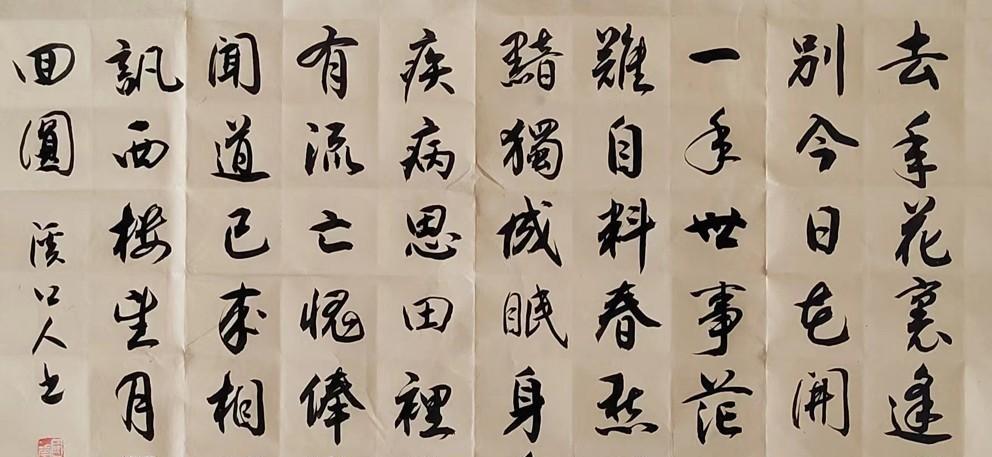 去年花裏逢
別今日花開
一年世事茫
難自料春愁
黯獨成眠身
疾病思田裡
有流亡愧俸
聞道已來相
訊西樓望月
回圓
溪口人书